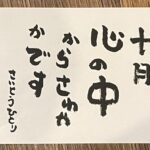 十月
心の中
からさわや
かです
さいとうひとり